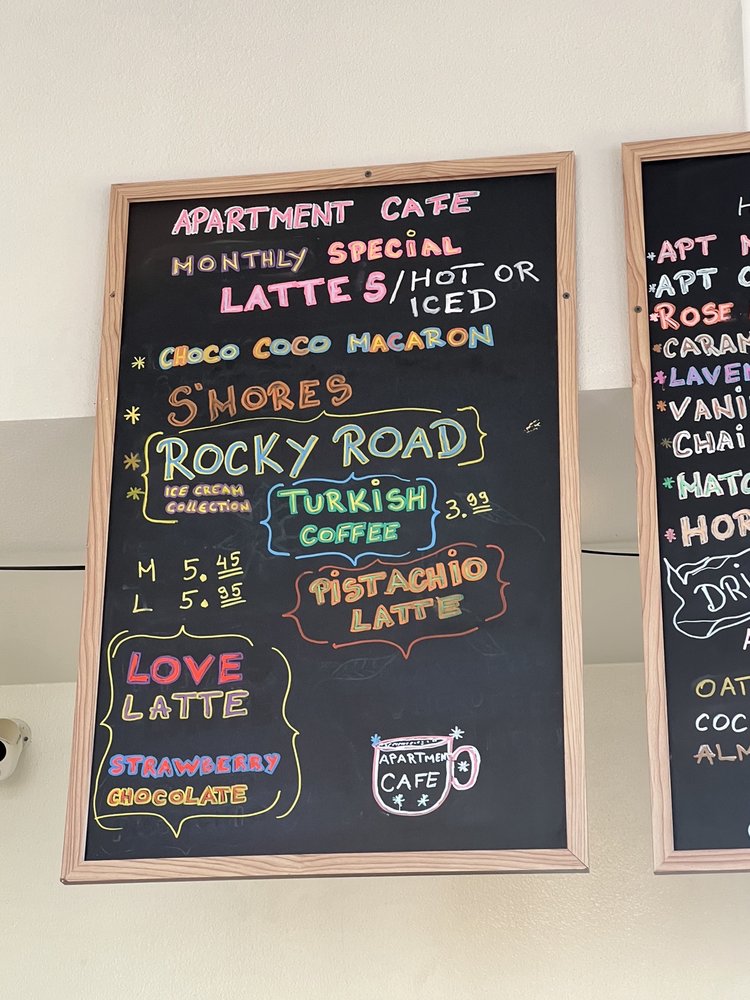 APARTMENT CAFE
MONTHLY SPECiAL
LATTE S/HOT OR
ICED
* CHOCO COCO MACARON
* S'MORES
* ROCKY ROAD
* ICE CREAM
COLLECTION
TURKiSH
COFFEE
3.99
M 5.45
L 5.95
PiSTACHiO
LATTE
LOVE
LATTE
STRAWBERRY
CHOCOLATE
APARTMENT
CAFE
*APT
*APT
*ROSE
*
*
*
CHAi
*
*